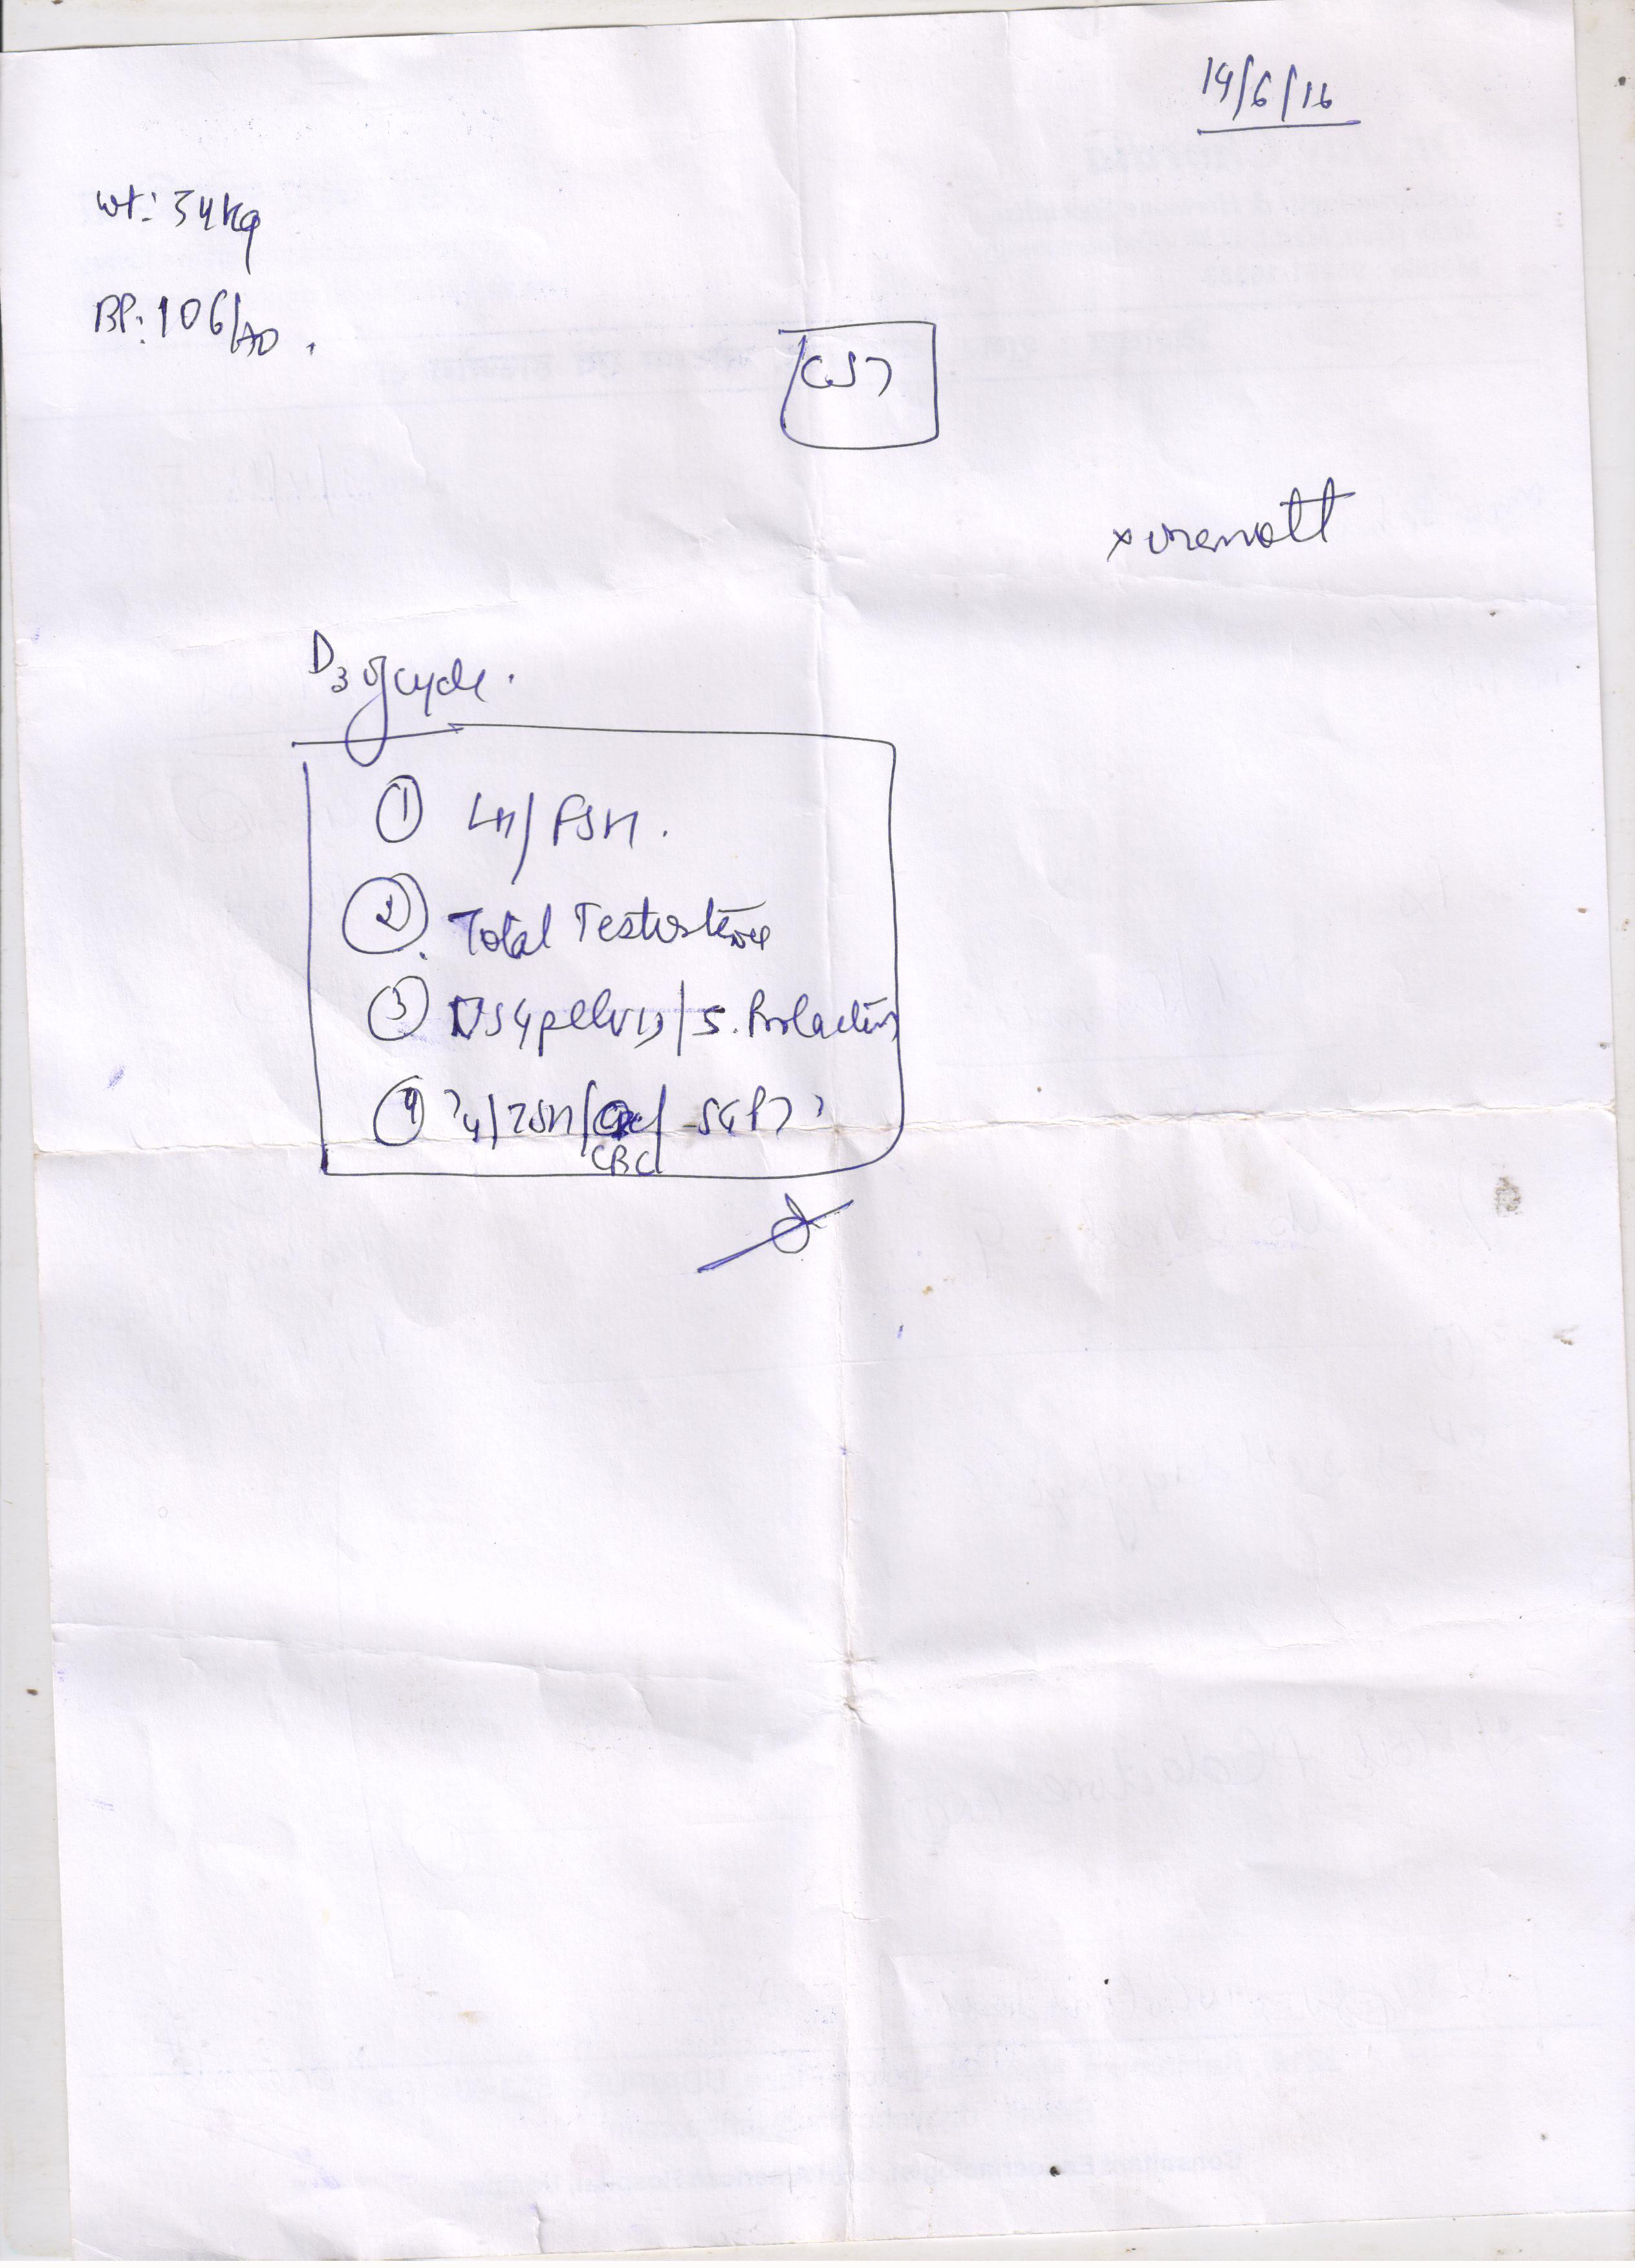 14/6/16
wt: 54kg
BP: 106/70.
CST
D3 of cycle.
① LH/FSH.
② Total Testosterone
③ USG pelvis/S. Prolactin
④ T4/TSH/CBC/SGPT